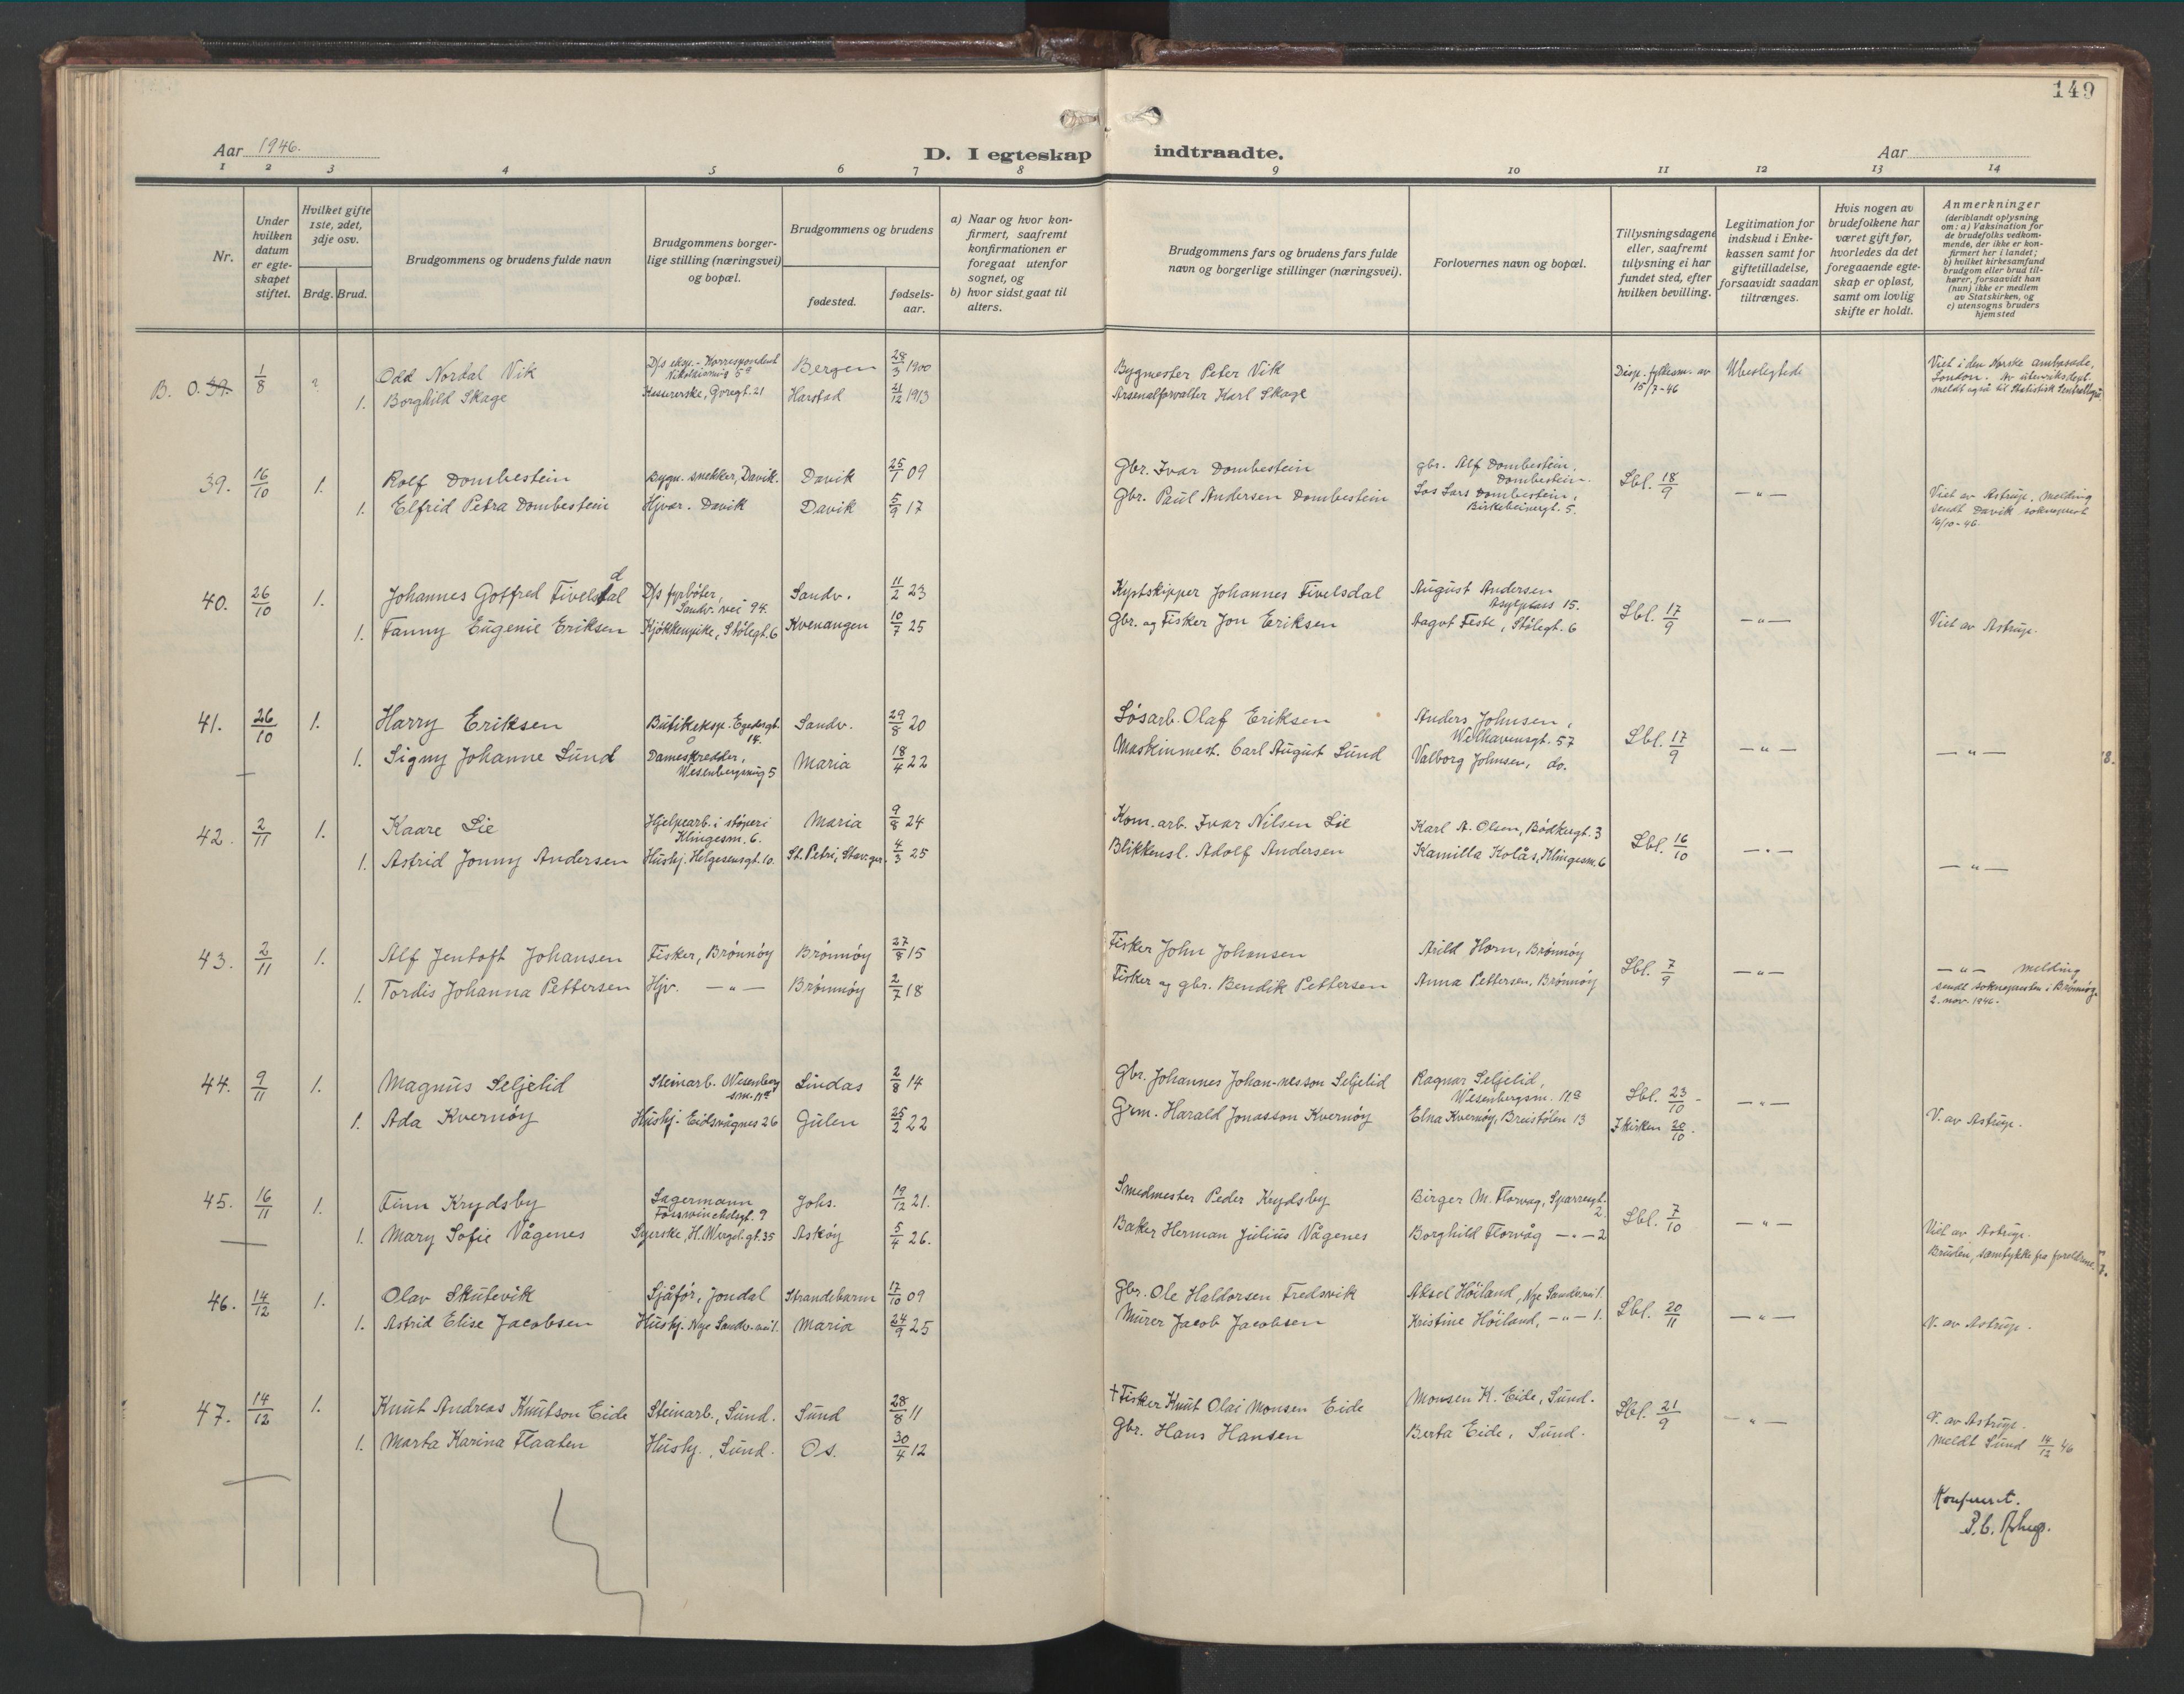 149
Aar 1946.
D. I egteskap indtraadte.
Aar
1 2 3 4 5 6 7 8 9 10 11 12 13 14
Nr.
Under hvilken datum er egteskapet stiftet.
Hvilket gifte 1ste, 2det, 3dje osv.
Brdg. Brud.
Brudgommens og brudens fulde navn
Brudgommens borgerlige stilling (næringsvei) og bopæl.
Brudgommens og brudens
fødested.
fødselsaar.
a) Naar og hvor konfirmert, saafremt konfirmationen er foregaat utenfor sognet, og
b) hvor sidst gaat til alters.
Brudgommens fars og brudens fars fulde navn og borgerlige stillinger (næringsvei).
Forlovernes navn og bopæl.
Tillysningsdagene eller, saafremt tillysning ei har fundet sted, efter hvilken bevilling.
Legitimation for indskud i Enkekassen samt for giftetilladelse, forsaavidt saadan tiltrænges.
Hvis nogen av brudefolkene har været gift før, hvorledes da det foregaaende egteskap er opløst, samt om lovlig skifte er holdt.
Anmerkninger
(deriblandt oplysning om: a) Vaksination for de brudefolks vedkommende, der ikke er konfirmert her i landet;
b) hvilket kirkesamfund brudgom eller brud tilhører, forsaavidt han (hun) ikke er medlem av Statskirken, og
c) utensogns bruders hjemsted
B. O. 39. 1/8 Odd Nordal Vik D/s eksp.-Korrespondent Nikolaismug 59 Bergen 28/3 1900 Bygmester Peter Vik Disp. fylkesm. av 15/7-46 Ubeslegtede Viet i den Norske ambasade, London. Av utenriksdept. meldt også til Statistisk Sentralbyrå
1. Borghild Skage Kasererske, Goregt. 21 Harstad 21/12 1913 Arsenalforvalter Karl Skage
39. 16/10 1. Rolf Dombestein Bygn. snekker, Davik. Davik 25/1 09 Gbr. Ivar Dombestein gbr. Alf Dombestein, Dombestein. Lbl. 18/9 — " —
1. Elfrid Petra Dombestein Hjvær. Davik Davik 5/9 17 Gbr. Paul Andersen Dombestein Lars Dombestein, Birkebeinergt. 5. Viet av Astrup. Melding sendt Davik sokneprest 16/10-46.
40. 26/10 1. Johannes Gotfred Tivelsdal D/s fyrbøter, Sandv. vei 94. Sandv. 11/2 23 Kyststkipper Johannes Tivelsdal August Andersen Asylplass 15. Lbl. 17/9 — " — Viet av Astrup.
1. Fanny Eugenie Eriksen Kjøkkenpike, Stølegt. 6 Kvenangen 10/7 25 Gbr. og Fisker Jon Eriksen Aagot Feste, Stølegt. 6
41. 26/10 1. Harry Eriksen Butikeksp. Egedesgt. 14. Sandv. 29/8 20 Løsarb. Olaf Eriksen Anders Johnsen, Welhavensgt. 57 Lbl. 17/9 — " — — " —
1. Signy Johanne Lund Dameskredder, Wesenbergsmug 5 Maria 18/4 22 Maskinmest. Carl August Lund Valborg Johnsen, do.
42. 2/11 1. Kaare Lie Hjelpearb. i støperi Klingesm. 6. Maria 9/8 24 Kom. arb. Ivar Nilsen Lie Karl A. Olsen, Bødkergt. 3 Lbl. 16/10 — " — — " —
1. Astrid Jonny Andersen Hushj. Helgesensgt. 10. St. Petri, Stav.ger. 4/3 25 Blikkensl. Adolf Andersen Kamilla Kolås, Klingesm. 6
43. 2/11 1. Alf Jentoft Johansen Fisker, Brønnøy Brønnøy 27/8 15 Fisker John Johansen Arild Horn, Brønnøy Lbl. 7/9 — " — — " — Melding sendt soknepresten i Brønnøy. 2. nov. 1946.
1. Tordis Johanna Pettersen Hjv. — " — Brønnøy 2/7 18 Fisker og gbr. Bendik Pettersen Anna Pettersen, Brønnøy
44. 9/11 1. Magnus Seljelid Steinarb. Wesenberg sm. 11a Lindås 2/8 14 Gbr. Johannes Johan-nesson Seljelid Ragnar Seljelid, Wesenbergsm. 11a Lbl. 23/10 - — " —
1. Ada Kvernøy Hushj. Eidsvågnes 26 Gulen 25/2 22 Grm. Harald Jonasson Kvernøy Elna Kvernøy, Breistølen 13 I kirken 20/10. V. av Astrup.
45. 16/11 1. Finn Krydsby Lagermann Forswinckelsgt. 9 Johs. 19/12 21. Smedmester Peder Krydsby Birger M. Florvag, Sparresgt. 2. Lbl. 7/10 — " — Viet av Astrup.
1. Mary Sofie Vågenes Syerske, H. Wergel. gt. 35 Askøy 5/4 26. Baker Herman Julius Vågenes Borghild Florvåg — " — 2 Bruden, samtykke fra foreldrene.
46. 14/12 1. Olav Skutevik Sjåfør, Jondal Strandebarm 17/10 09 Gbr. Ole Haldorsen Fredsvik Aksel Høiland, Nye Sandv.vei 1. Lbl. 20/11 — " — V. av Astrup.
1. Astrid Elise Jacobsen Hushj. Nye Sandv.vei 1. Maria 24/9 25 Murer Jacob Jacobsen Kristine Høiland, — " — 1.
47. 14/12 1. Knut Andreas Knutson Eide Steinarb., Sund. Sund 28/8 11 † Fisker Knut Olai Monsen Eide Monsen K. Eide, Sund. Lbl. 21/9 — " — V. av Astrup.
1. Marta Karina Flaaten Hushj., Sund. Os. 30/4 12 Gbr. Hans Hansen Berta Eide, Sund. Meldt Sund 14/12 46
Konferert.